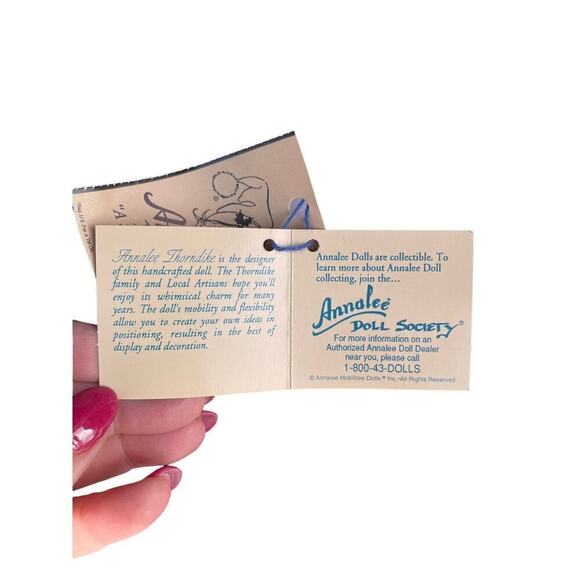 Annalee Thorndike is the designer
of this handcrafted doll. The Thorndike
family and Local Artisans hope you'll
enjoy its whimsical charm for many
years. The doll's mobility and flexibility
allow you to create your own ideas in
positioning, resulting in the best of
display and decoration.
Annalee Dolls are collectible. To
learn more about Annalee Doll
collecting, join the...
Annalee®
DOLL SOCIETY®
For more information on an
Authorized Annalee Doll Dealer
near you, please call
1-800-43-DOLLS
© Annalee Mobilitee Dolls,® Inc •All Rights Reserved